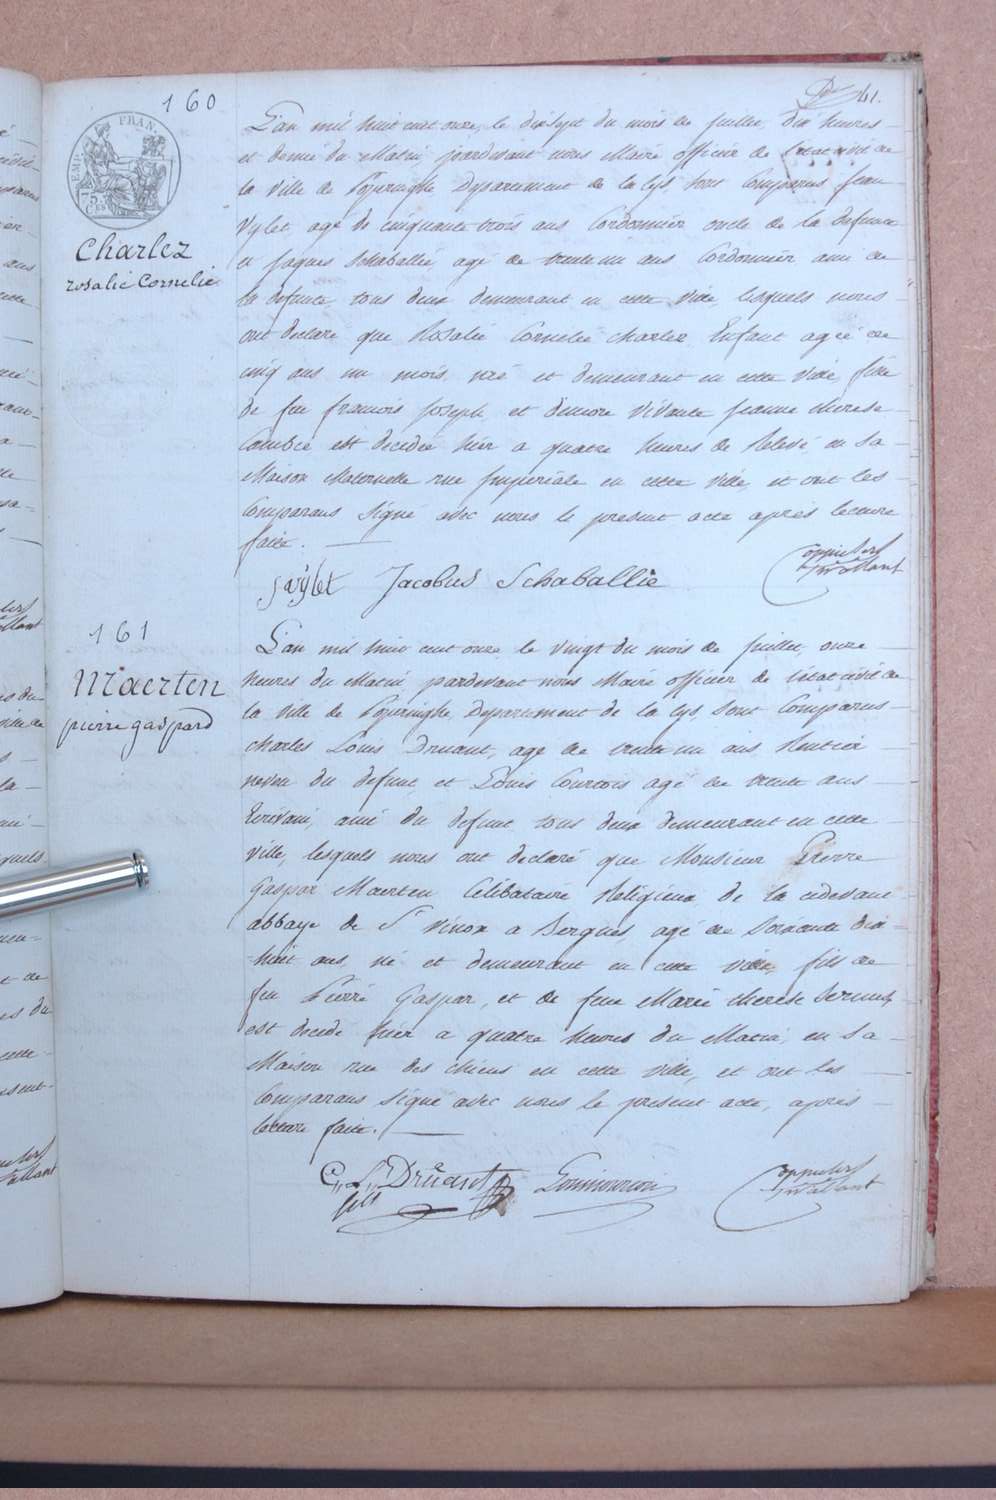 160
41.
EMP. FRAN.
Charlez
rosalie Cornelie
L'an mil huit cent onze, le dixsept du mois de juillet, dix heures
et demie du Matin, pardevant nous Maire officier de l'etat civil de
la ville de Poperinghe Departement de la lys, sont Comparus jean
Vylet, agé de cinquante trois ans Cordonnier oncle de la defunte
et jaques Schaballie, agé de trente un ans Cordonnier ami de
la defunte tous deux demeurant en cette ville, lesquels nous
ont declaré que Rosalie Cornelie Charlez Enfant agée de
cinq ans un mois, née et demeurant en cette ville, fille
de feu francois joseph, et demore vivante jeanne therese
Cambie est decedée hier a quatre heures de Relevé en sa
Maison Maternelle rue jmperiale en cette ville, et ont les
Comparans Signé avec nous le present acte après lecture
faite.
J Vylet Jacobus Schaballie
161
Maerten
pierre gaspard
L'an mil huit cent onze le vingt du mois de juillet, onze
heures du Matin pardevant nous Maire officier de l'état civil de
la ville de Poperinghe, Departement de la lys, sont Comparus
Charles Louis Druant, agé de trente un ans Rentier
neveu du defunt, et Louis Courtois agé de trente ans
Ecrivain, ami du defunt tous deux demeurant en cette
ville, lesquels nous ont declaré que Monsieur Pierre
Gaspar Maerten Célibataire Religieux de la cidevant
abbaye de St Vinox a Bergues, agé de Soixante dix
=huit ans, né et demeurant en cette ville, fils de
feu Pierre Gaspar, et de feue Marie therese
est decedé hier a quatre heures du Matin, en sa
Maison rue des chiens en cette ville, et ont les
Comparans Signé avec nous le present acte, après
lecture faite.
C,, L,, Druant
fils